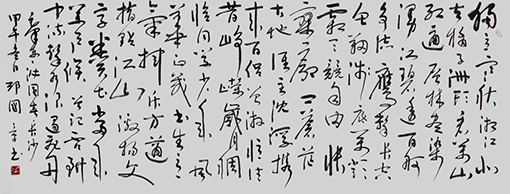 独立寒秋湘江北
去橘子洲头看万山
红遍层林尽染
漫江碧透百舸
争流鹰击长空
鱼翔浅底万类
霜天竞自由怅
寥廓问苍茫
大地谁主沉浮携
来百侣曾游忆往
昔峥嵘岁月稠
恰同学少年风
华正茂书生意
气挥斥方遒
指点江山激扬文
字粪土当年
万户侯曾记否到
中流击水浪遏飞舟
毛泽东沁园春长沙
甲午